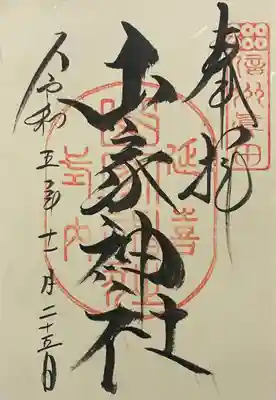 信州眞田
奉拝
延喜
山家神社
式内
令和五年十一月二十五日